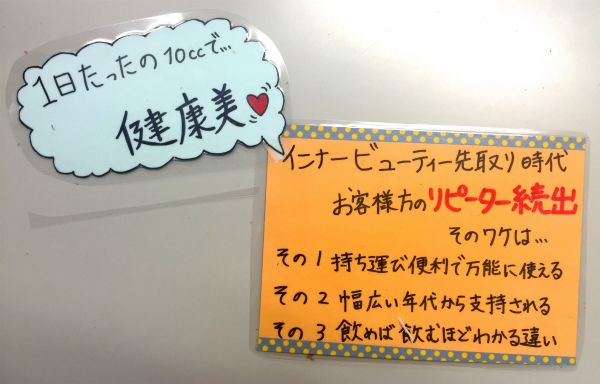 1日たったの10ccで…
健康美
インナービューティー先取り時代
お客様方のリピーター続出
そのワケは…
その1 持ち運び便利で万能に使える
その2 幅広い年代から支持される
その3 飲めば飲むほどわかる違い